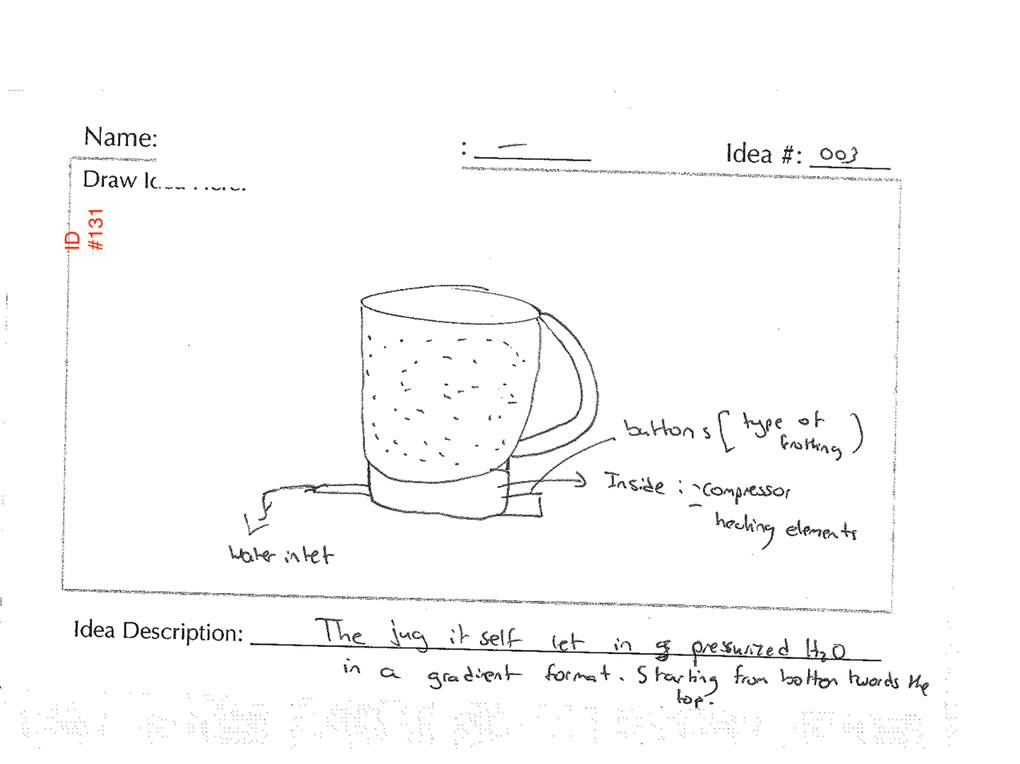 Name:
: — Idea #: 003
Draw Idea Here:
ID
#131
buttons (type of
frothing)
Inside : - compressor
- heating elements
Water inlet
Idea Description: The jug it self let in pressurized H2O
in a gradient format. Starting from botton twords the
top.